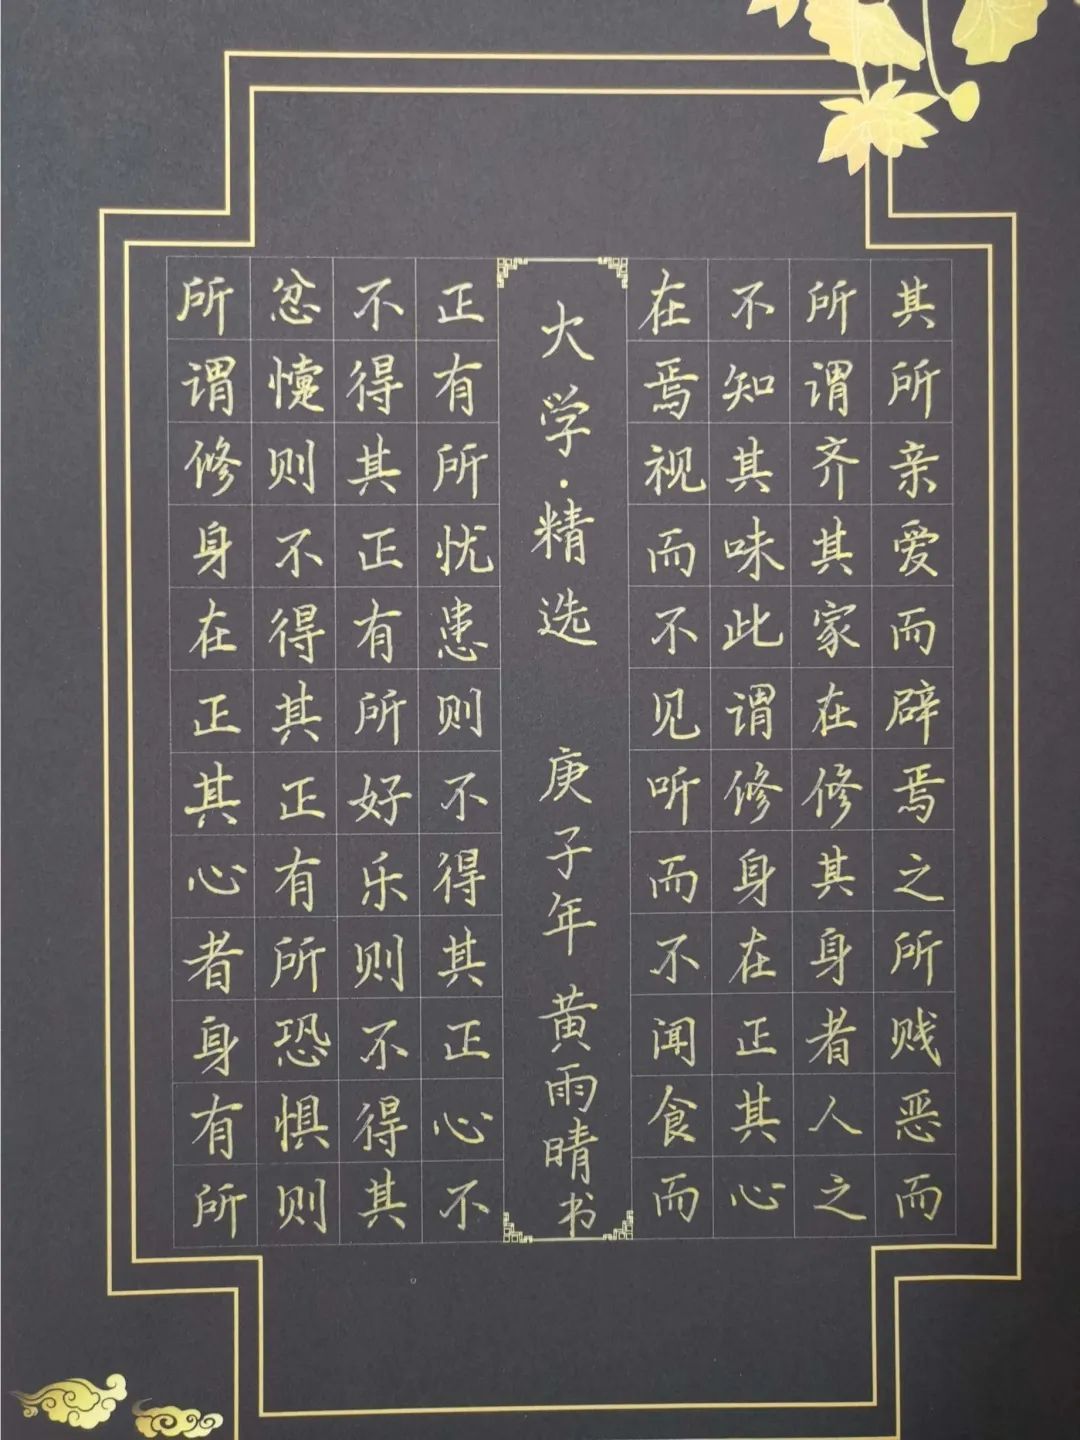 所谓修身在正其心者身有所
忿懥则不得其正有所恐惧则
不得其正有所好乐则不得其
正有所忧患则不得其正心不
大学·精选 庚子年 黄雨晴书
在焉视而不见听而不闻食而
不知其味此谓修身在正其心
所谓齐其家在修其身者人之
其所亲爱而辟焉之所贱恶而